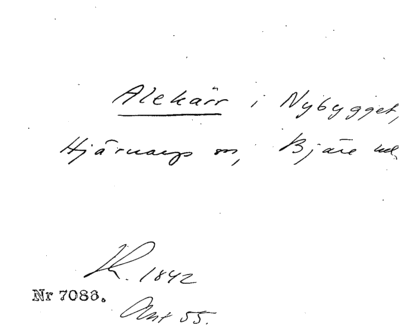 Alekärr i Nybygget,
Hjärnarps sn, Bjäre hd.
1842
Nr 7086.
55.